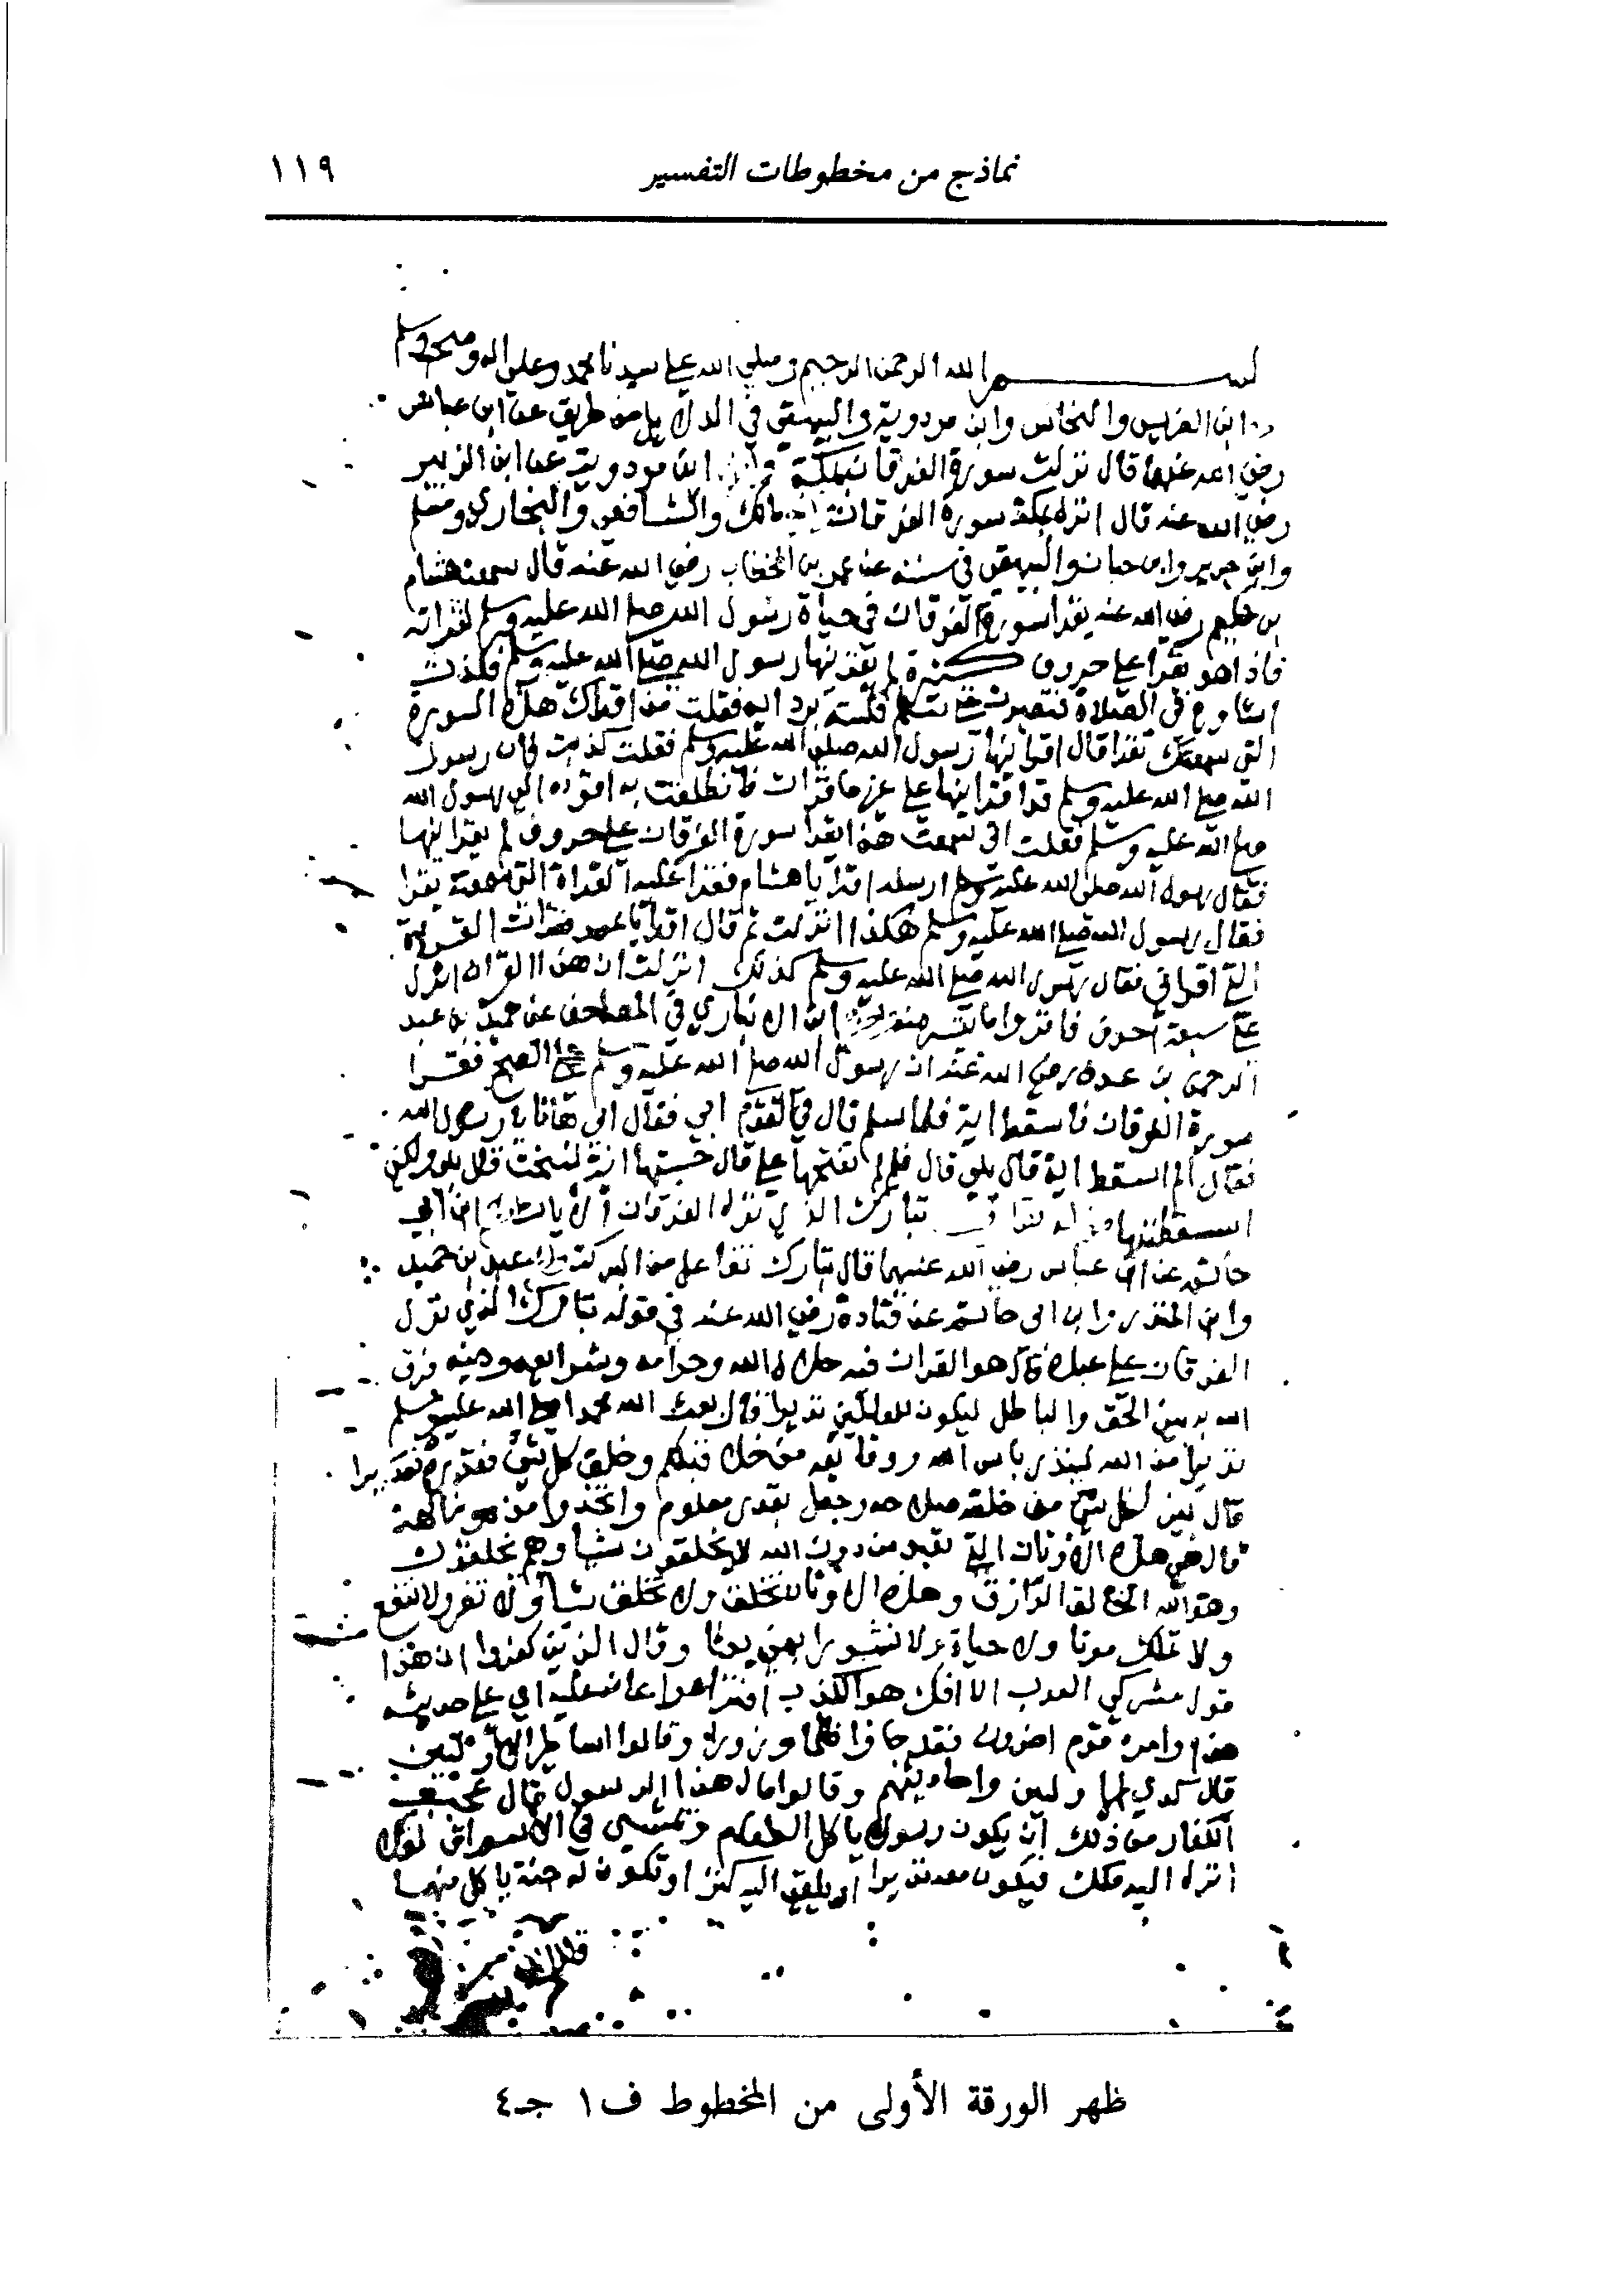 نماذج من مخطوطات التفسير ١١٩
بسم الله الرحمن الرحيم وصلى الله على سيدنا محمد وعلى اله وصحبه وسلم
ابن الضريس والنحاس وابن مردوية والبيهقي في الدلايل من طريق عن ابن عباس
رضي الله عنهما قال نزلت سورة الفرقان بمكة ابن مردوية عن ابن الزبير
رضي الله عنه قال انزل بمكة سورة الفرقان مالك والشافعي والبخاري ومسلم
وابن جرير وابن حبان والبيهقي في سننه عن عمر بن الخطاب رضي الله عنه قال سمعت هشام
بن حكيم رضي الله عنه يقرا سورة الفرقان في حياة رسول الله صلى الله عليه وسلم
فاذا هو يقرا على حروف كثيرة لم يقرئنيها رسول الله صلى الله عليه وسلم فكدت
اساوره في الصلاة فتصبرت حتى سلم بردايه فقلت من اقراك هذه السورة
التي سمعتك تقرا قال اقرانيها رسول الله صلى الله عليه وسلم فقلت كذبت فان رسول
الله صلى الله عليه وسلم قد اقرانيها على غير ما قرات فانطلقت به اقوده الى رسول الله
صلى الله عليه وسلم فقلت اني سمعت هذا يقرا سورة الفرقان على حروف لم تقرانيها
فقال رسول الله صلى الله عليه وسلم ارسله اقرا يا هشام فقرا عليه القراة التي سمعته يقرا
فقال رسول الله صلى الله عليه وسلم هكذا انزلت ثم قال اقرا يا عمر فقرات القراة
التي اقراني فقال رسول الله صلى الله عليه وسلم كذلك انزلت ان هذا القران انزل
على سبعة احرف فاقروا ما تيسر منه ابن الانباري في المصاحف عن حميد بن عبد
الرحمن بن رضي الله عنه ان رسول الله صلى الله عليه وسلم الصبح فقرا
سورة الفرقان فاسقط اية فلما سلم قال في القوم ابي فقال ابي هانا يا رسول الله
فقال الم اسقط اية قال بلى قال فلم لم تفتحها علي قال حسبتها اية نسخت قال لا ولكني
اسقطتها تبارك الذي نزل الفرقان الايات ابن ابي
حاتم عن ابن عباس رضي الله عنهما قال تبارك تفاعل من البركة عبد بن حميد
وابن المنذر وابن ابي حاتم عن قتادة رضي الله عنه في قوله تبارك الذي نزل
الفرقان على عبده قال هو القران فيه حلال الله وحرامه وشرايعه ودينه فرق
الله به بين الحق والباطل ليكون للعالمين نذيرا قال بعث الله محمدا صلى الله عليه وسلم
نذيرا من الله لينذر باس الله ووقايعه من خلا قبلكم وخلق كل شي فقدره تقديرا
قال بين لكل شي من خلقه صلاحه وجعل بقدر معلوم واتخذوا من دونه الهة
قال هي هذه الاوثان التي تعبد من دون الله لا يخلقون شيا وهم يخلقون
وهو الله الخالق الرازق وهذه الاوثان تخلق ولا تخلق شيا ولا تضر ولا تنفع
ولا تملك موتا ولا حياة ولا نشورا يعني بعثا وقال الذين كفروا ان هذا
قول مشركي العرب الا افك هو الكذب افتراه واعانه عليه اي على حديثه
هذا وامره قوم اخرون فقد جاوا ظلما وزورا وقالوا اساطير الاولين
قال الاولين واحاديثهم وقالوا مال هذا الرسول قال عجب
الكفار من ذلك ان يكون رسول ياكل الطعام ويمشي في الاسواق لولا
انزل اليه ملك فيكون معه نذيرا او يلقى اليه كنز او تكون له جنة ياكل منها
ظهر الورقة الأولى من المخطوط ف١ جـ٤